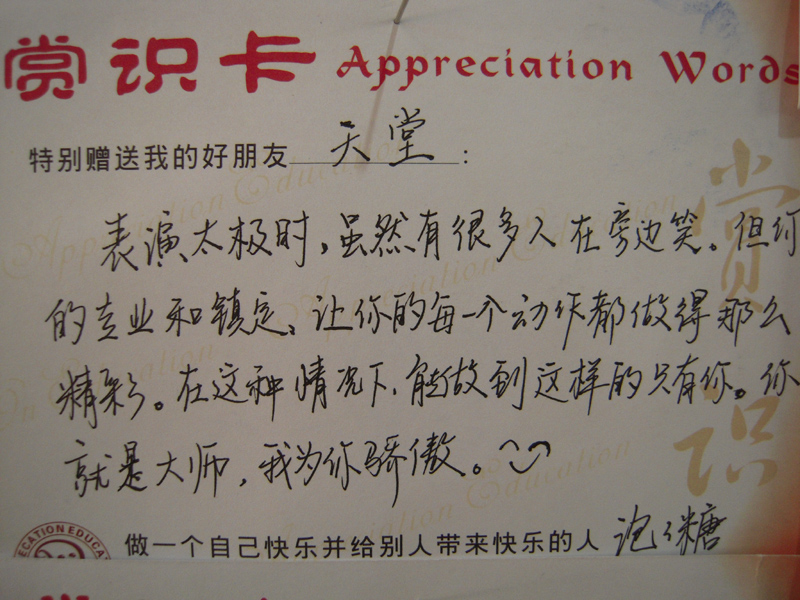 赏识卡 Appreciation Words
特别赠送我的好朋友 天堂 :
表演太极时,虽然有很多人在旁边笑。但你
的专业和镇定、让你的每一个动作都做得那么
精彩。在这种情况下,能做到这样的只有你。你
就是大师,我为你骄傲。
赏识
做一个自己快乐并给别人带来快乐的人 泡泡糖